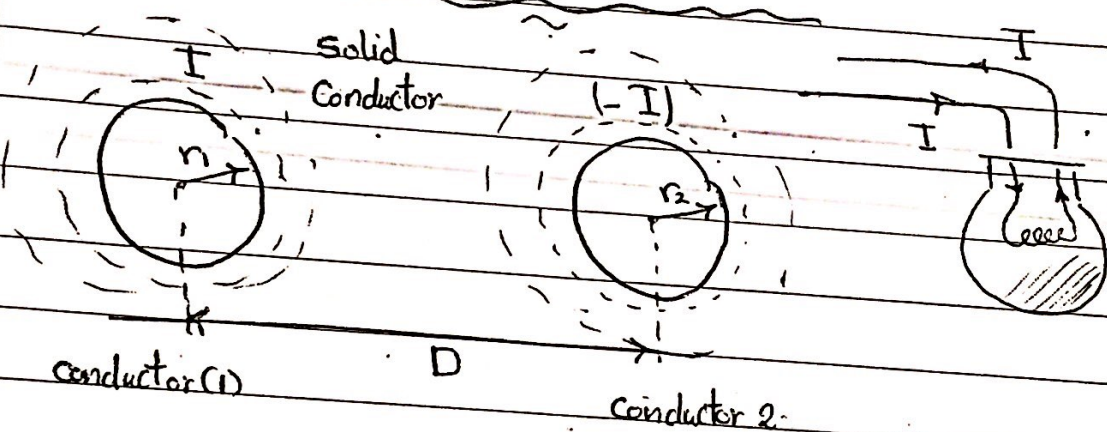 I
Solid
Conductor
r1
(-I)
r2
I
I
D
conductor (1)
Coinductor 2.